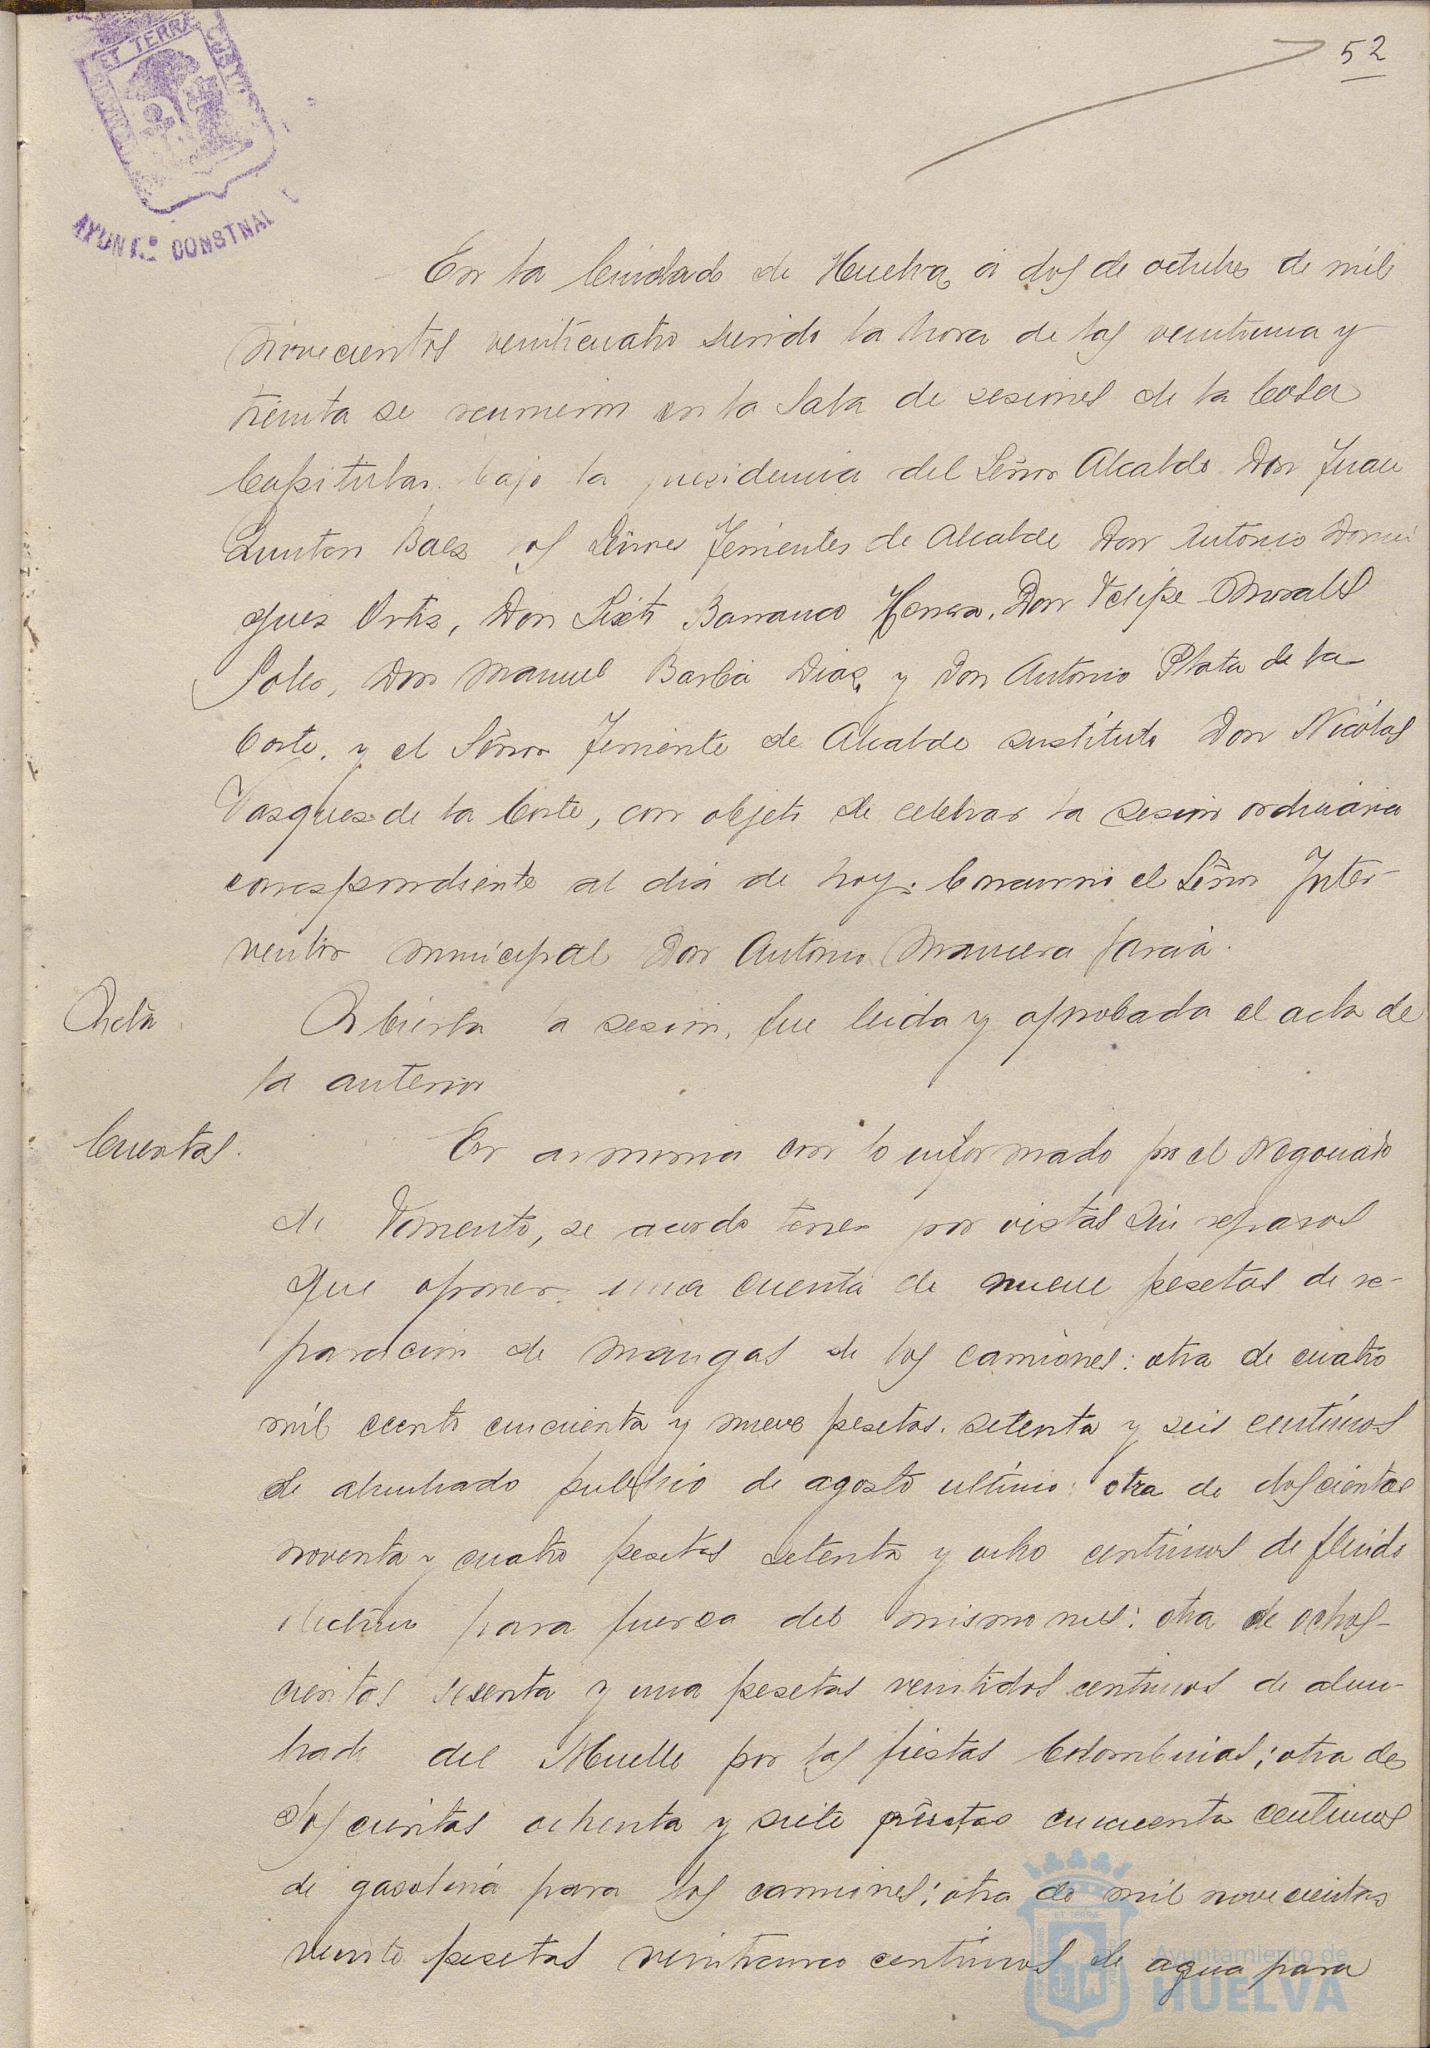 52
ET TERRÆ
CUSTO
AYUNT.º CONSTNAL
En la Ciudad de Huelva á dos de octubre de mil
novecientos veinticuatro siendo la hora de las veintiuna y
treinta se reunieron en la Sala de sesiones de la Casa
Capitular bajo la presidencia del Señor Alcalde Don Juan
Quintero Baez los Señores Tenientes de Alcalde Don Antonio Domin
guez Ortiz, Don Sixto Barranco Herrera, Don Felipe Morales
Don Manuel Barba Diaz, y Don Antonio Plata de la
Corte, y el Señor Teniente de Alcalde sustituto Don Nicólas
Vasquez de la Corte, con objeto de celebrar la sesion ordinaria
correspondiente al dia de hoy. Concurrio el Señor Inter-
ventor municipal Don Antonio Mancera Garcia.
Acta
Abierta la sesion, fue leida y aprobada el acta de
la anterior
Cuentas.
En armonia con lo informado por el Negociado
de Fomento, se acordo tener por vistas sin reparos
que oponer una cuenta de nueve pesetas de re-
paracion de mangas de los camiones: otra de cuatro
mil ciento cincuenta y nueve pesetas setenta y seis centimos
de alumbrado publico de agosto ultimo: otra de doscientas
noventa y cuatro pesetas setenta y ocho centimos de fluido
electrico para fuerza del mismo mes: otra de ochos-
cientas sesenta y una pesetas veintidos centimos de alum-
brado del Muelle por las fiestas Colombinas; otra de
doscientas ochenta y siete pesetas cincuenta centimos
de gasolina para los camiones; otra de mil novecientas
veinte pesetas veinticinco centimos de agua para
Ayuntamiento de
HUELVA